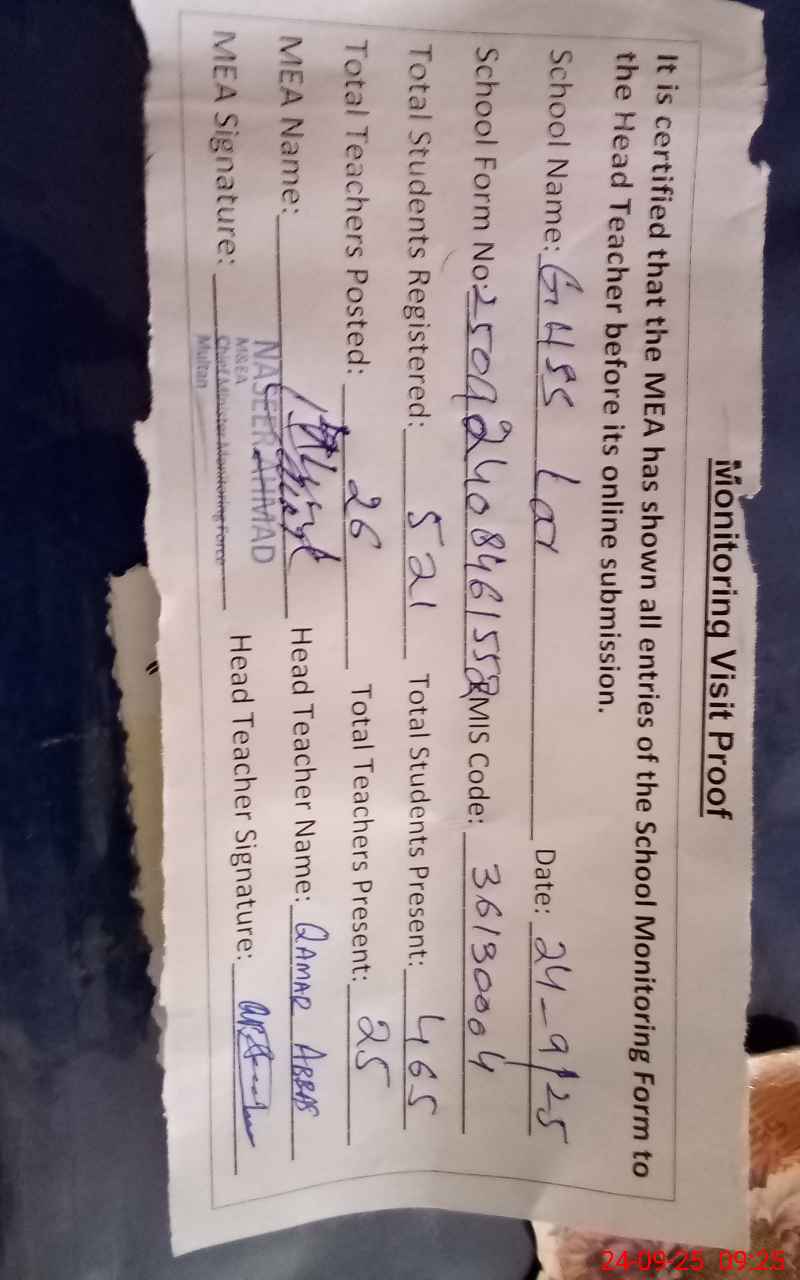 Monitoring Visit Proof
It is certified that the MEA has shown all entries of the School Monitoring Form to
the Head Teacher before its online submission.
School Name: GHSS Lar Date: 24-9/25
School Form No: 2509240846155 EMIS Code: 36130004
Total Students Registered: 521 Total Students Present: 465
Total Teachers Posted: 26 Total Teachers Present: 25
MEA Name: Head Teacher Name: QAMAR ABBAS
MEA Signature: Head Teacher Signature:
NASEER AHMAD
M&EA
Chief Minister Monitoring Force
Multan
24-09-25 09:25